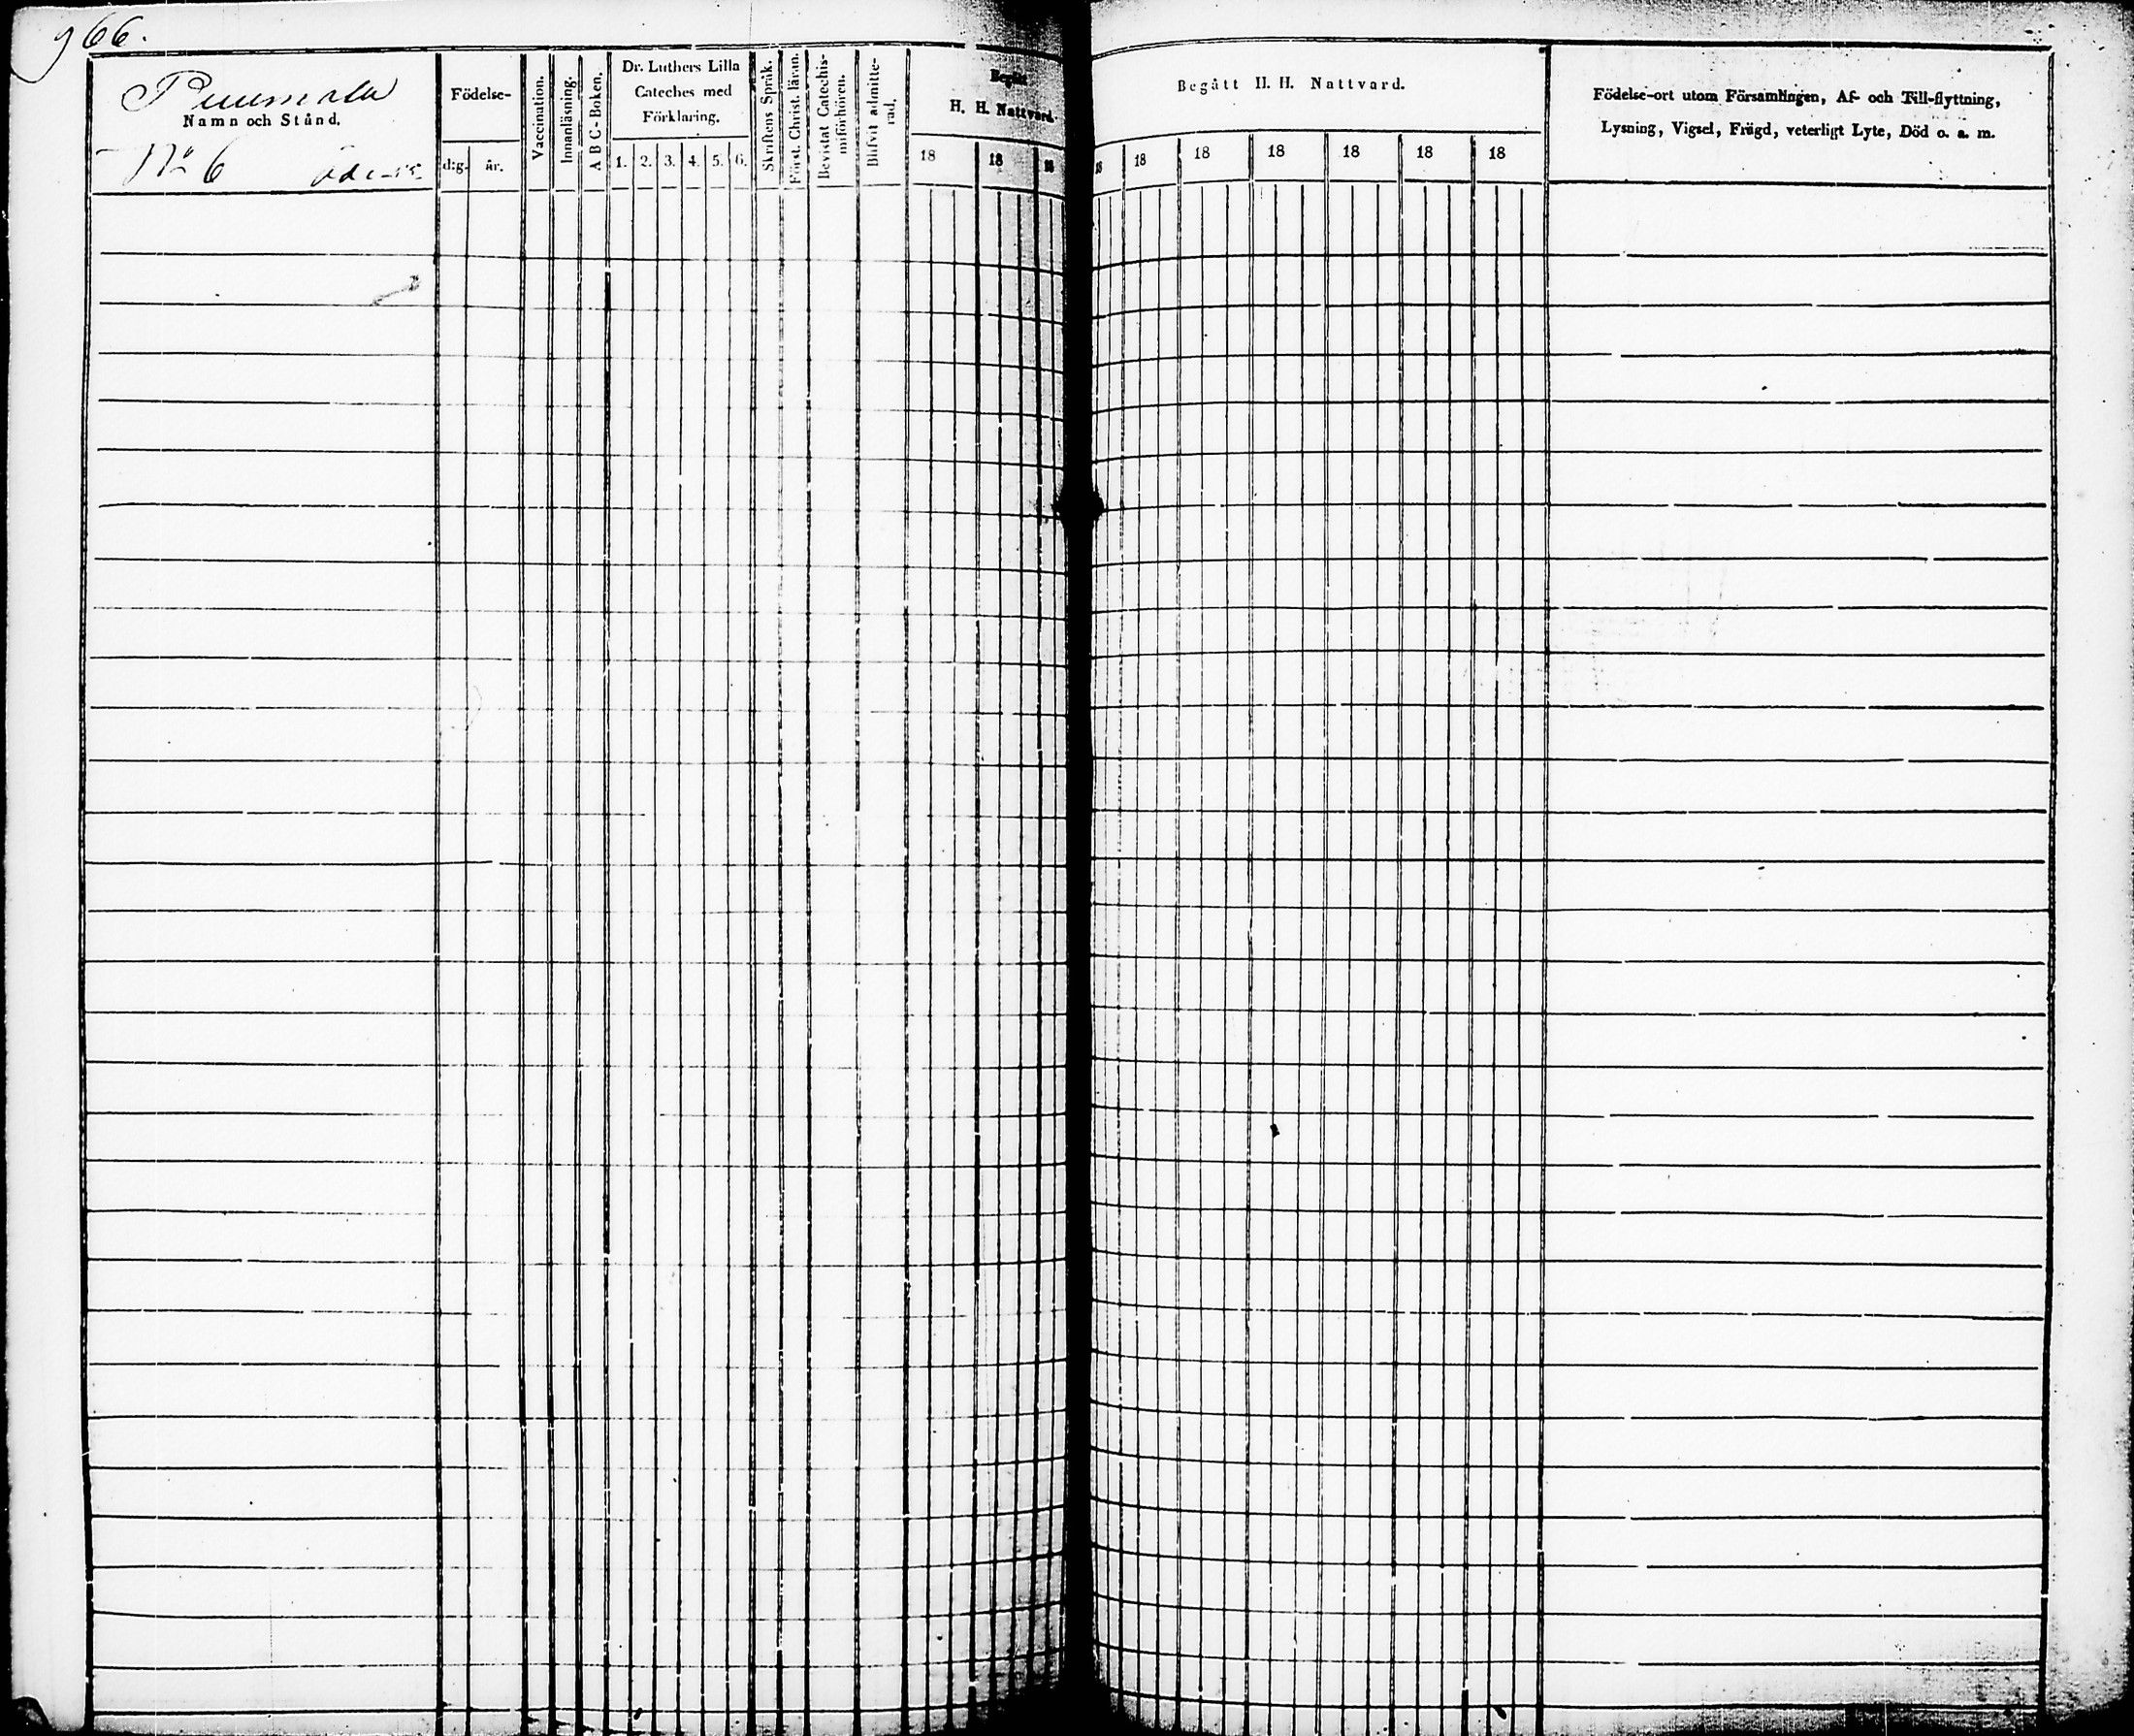 966.
Puumala
Namn och Stånd.
N:o 6 öde
Födelse-
d:g. år.
Vaccination.
Innanläsning.
A B C-Boken.
Dr. Luthers Lilla
Cateches med
Förklaring.
1. 2. 3. 4. 5. 6.
Skriftens Språk.
Först. Christ. läran.
Bevistat Catechis-
miförhören.
Blifvit admitte-
rad.
Begått
H. H. Nattvard.
18 18 18
Begått H. H. Nattvard.
18 18 18 18 18 18 18
Födelse-ort utom Församlingen, Af- och Till-flyttning,
Lysning, Vigsel, Frägd, veterligt Lyte, Död o. a. m.